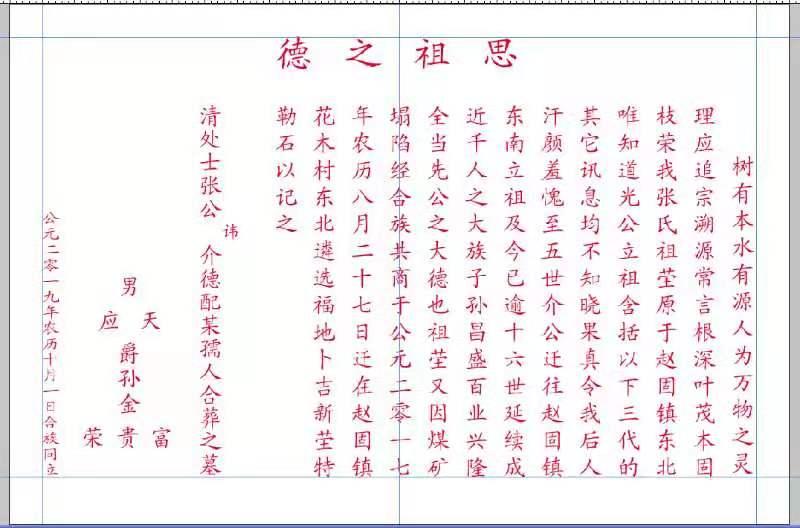 思祖之德
树有本水有源人为万物之灵
理应追宗溯源常言根深叶茂本固
枝荣我张氏祖茔原于赵固镇东北
唯知道光公立祖含括以下三代的
其它讯息均不知晓果真令我后人
汗颜羞愧至五世介公迁往赵固镇
东南立祖及今已逾十六世延续成
近千人之大族子孙昌盛百业兴隆
全当先公之大德也祖茔又因煤矿
塌陷经合族共商于公元二零一七
年农历八月二十七日迁在赵固镇
花木村东北遴选福地卜吉新茔特
勒石以记之
清处士张公讳介德配某孺人合葬之墓
男
天 应
爵孙金
富 贵 荣
公元二零一九年农历十月一日合族同立